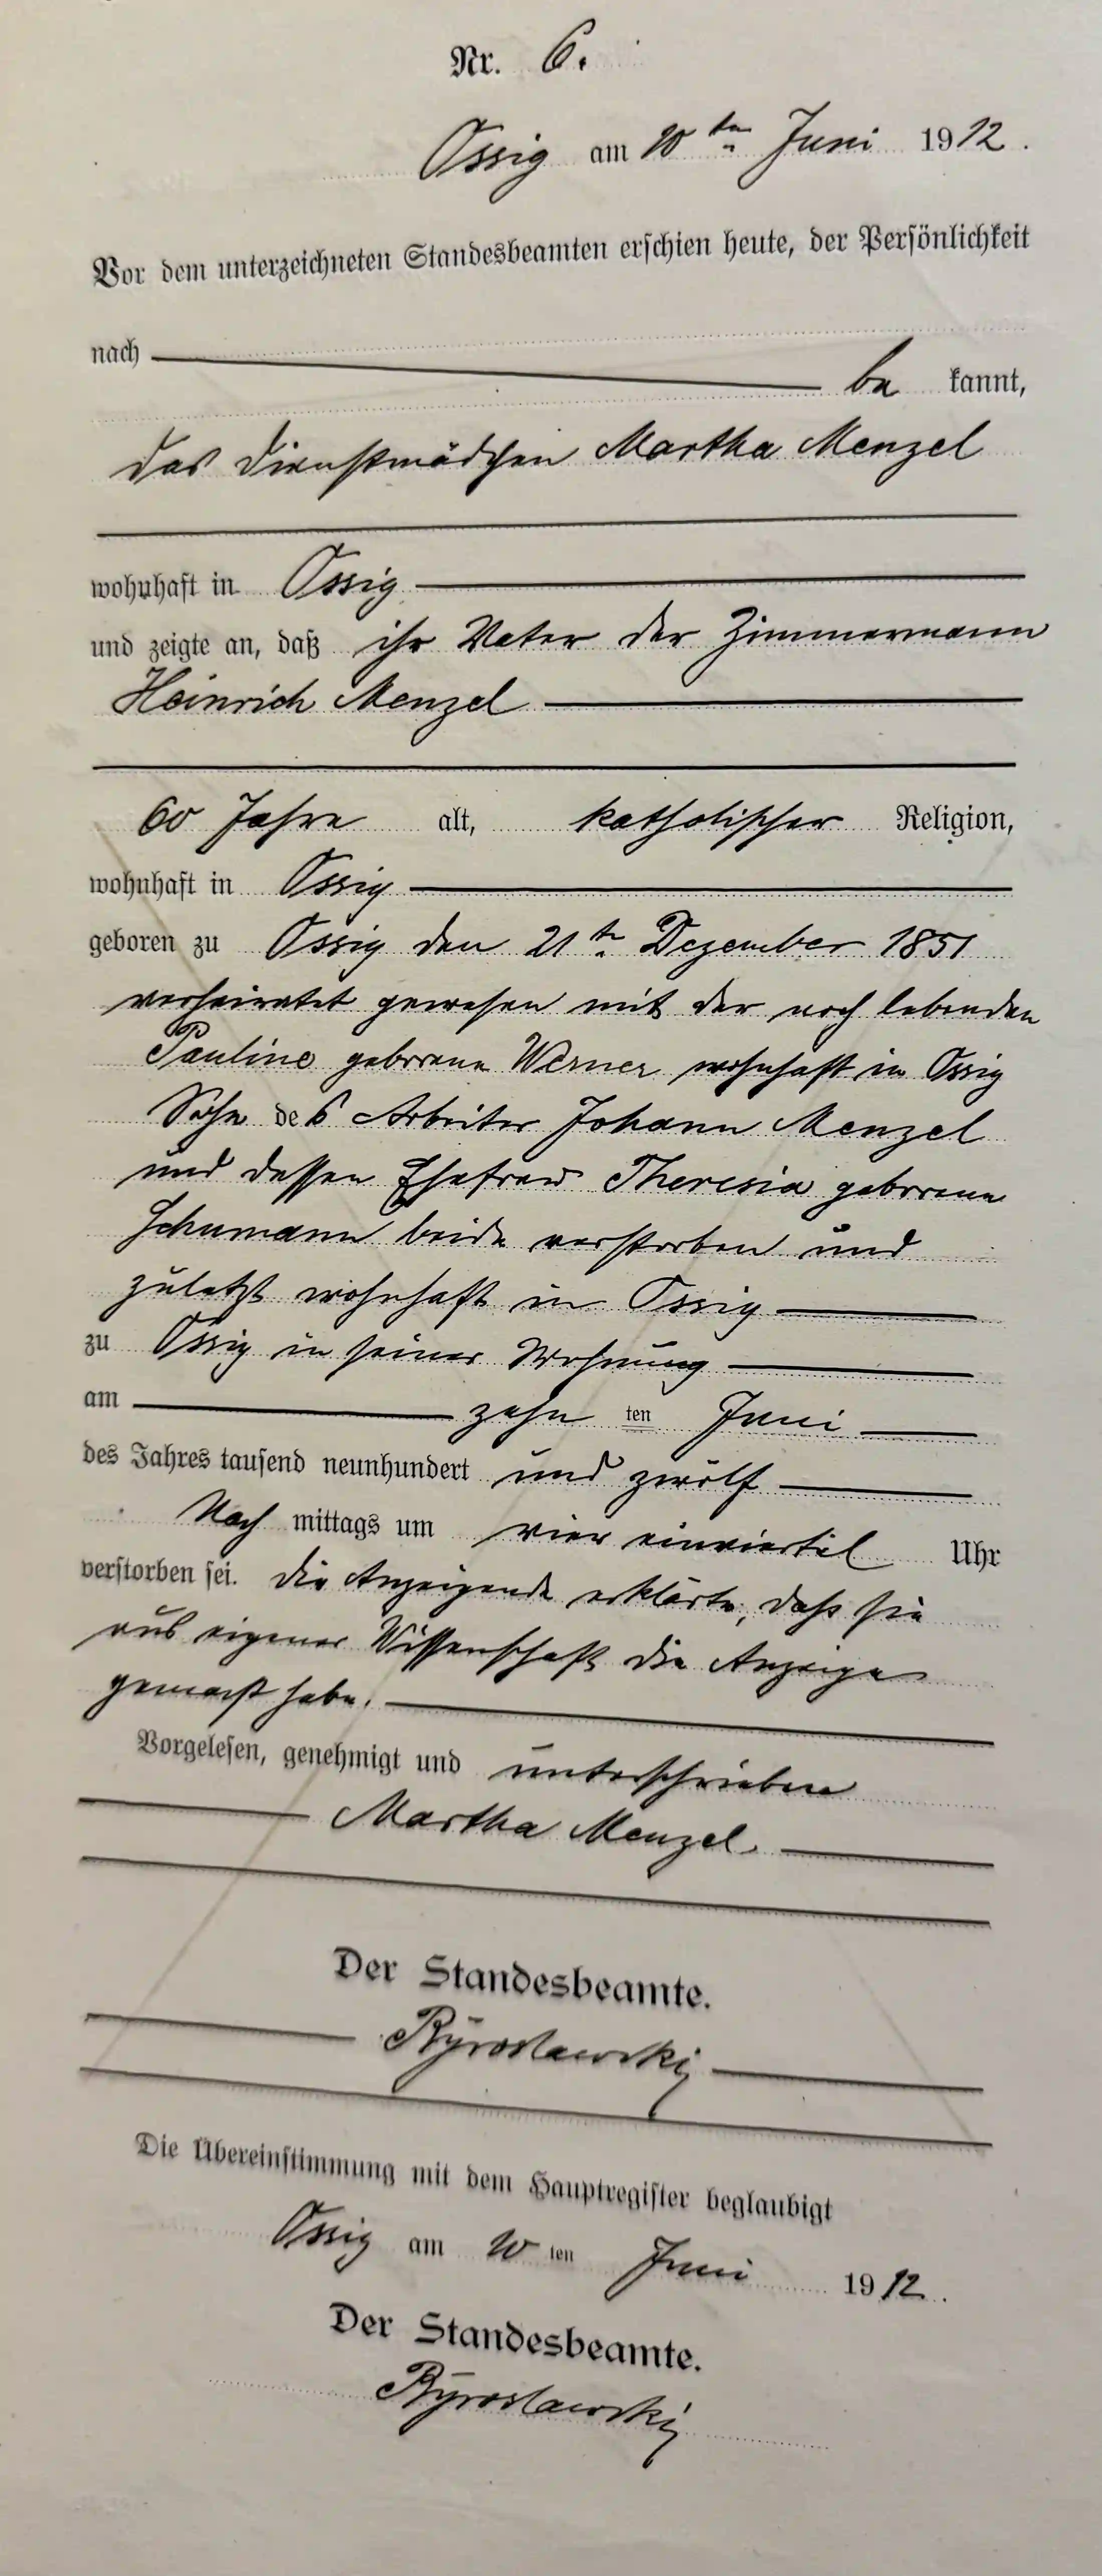 Nr. 6.
Ossig am 10ten Juni 1912.
Vor dem unterzeichneten Standesbeamten erschien heute, der Persönlichkeit
nach be kannt,
das Dienstmädchen Martha Menzel
wohnhaft in Ossig
und zeigte an, daß ihr Vater der Zimmermann
Heinrich Menzel
60 Jahre alt, katholischer Religion,
wohnhaft in Ossig
geboren zu Ossig den 21ten Dezember 1851
verheiratet gewesen mit der noch lebenden
Pauline geborene Werner wohnhaft in Ossig
Sohn des Arbeiter Johann Menzel
und dessen Ehefrau Theresia geborene
Schumann beide verstorben und
zuletzt wohnhaft in Ossig
zu Ossig in seiner Wohnung
am zehn ten Juni
des Jahres tausend neunhundert und zwölf
Nach mittags um vier einviertel Uhr
verstorben sei. Die Anzeigende erklärte, daß sie
aus eigener Wissenschaft die Anzeige
gemacht habe.
Vorgelesen, genehmigt und unterschrieben
Martha Menzel.
Der Standesbeamte.
Die Übereinstimmung mit dem Hauptregister beglaubigt
Ossig am 10 ten Juni 1912.
Der Standesbeamte.